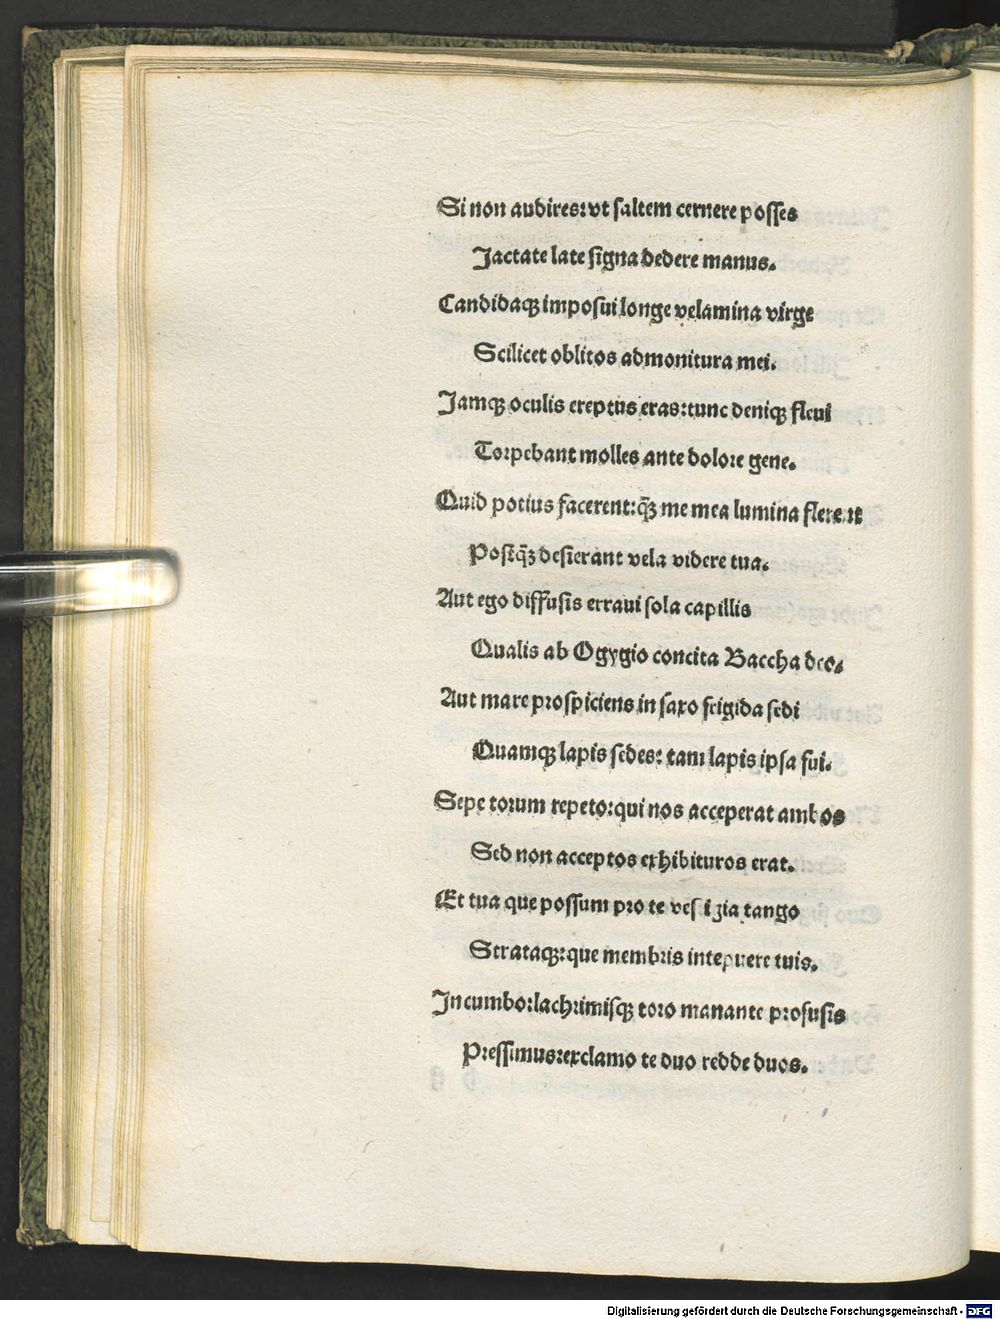 Si non audires:vt saltem cernere posses
Jactate late signa dedere manus.
Candidaqꝫ imposui longe velamina virge
Scilicet oblitos admonitura mei.
Jamqꝫ oculis ereptus eras:tunc deniqꝫ fleui
Torpebant molles ante dolore gene.
Quid potius facerent:q̃ꝫ me mea lumina flerent
Postq̃ꝫ desierant vela videre tua.
Aut ego diffusis erraui sola capillis
Qualis ab Ogygio concita Baccha deo.
Aut mare prospiciens in saxo frigida sedi
Quamqꝫ lapis sedes: tam lapis ipsa fui.
Sepe torum repeto:qui nos acceperat ambos
Sed non acceptos exhibituros erat.
Et tua que possum pro te vestigia tango
Strataqꝫ:que membris intepuere tuis.
Incumbo:lachrimisqꝫ toro manante profusis
Pressimus:exclamo te duo redde duos.
Digitalisierung gefördert durch die Deutsche Forschungsgemeinschaft - DFG